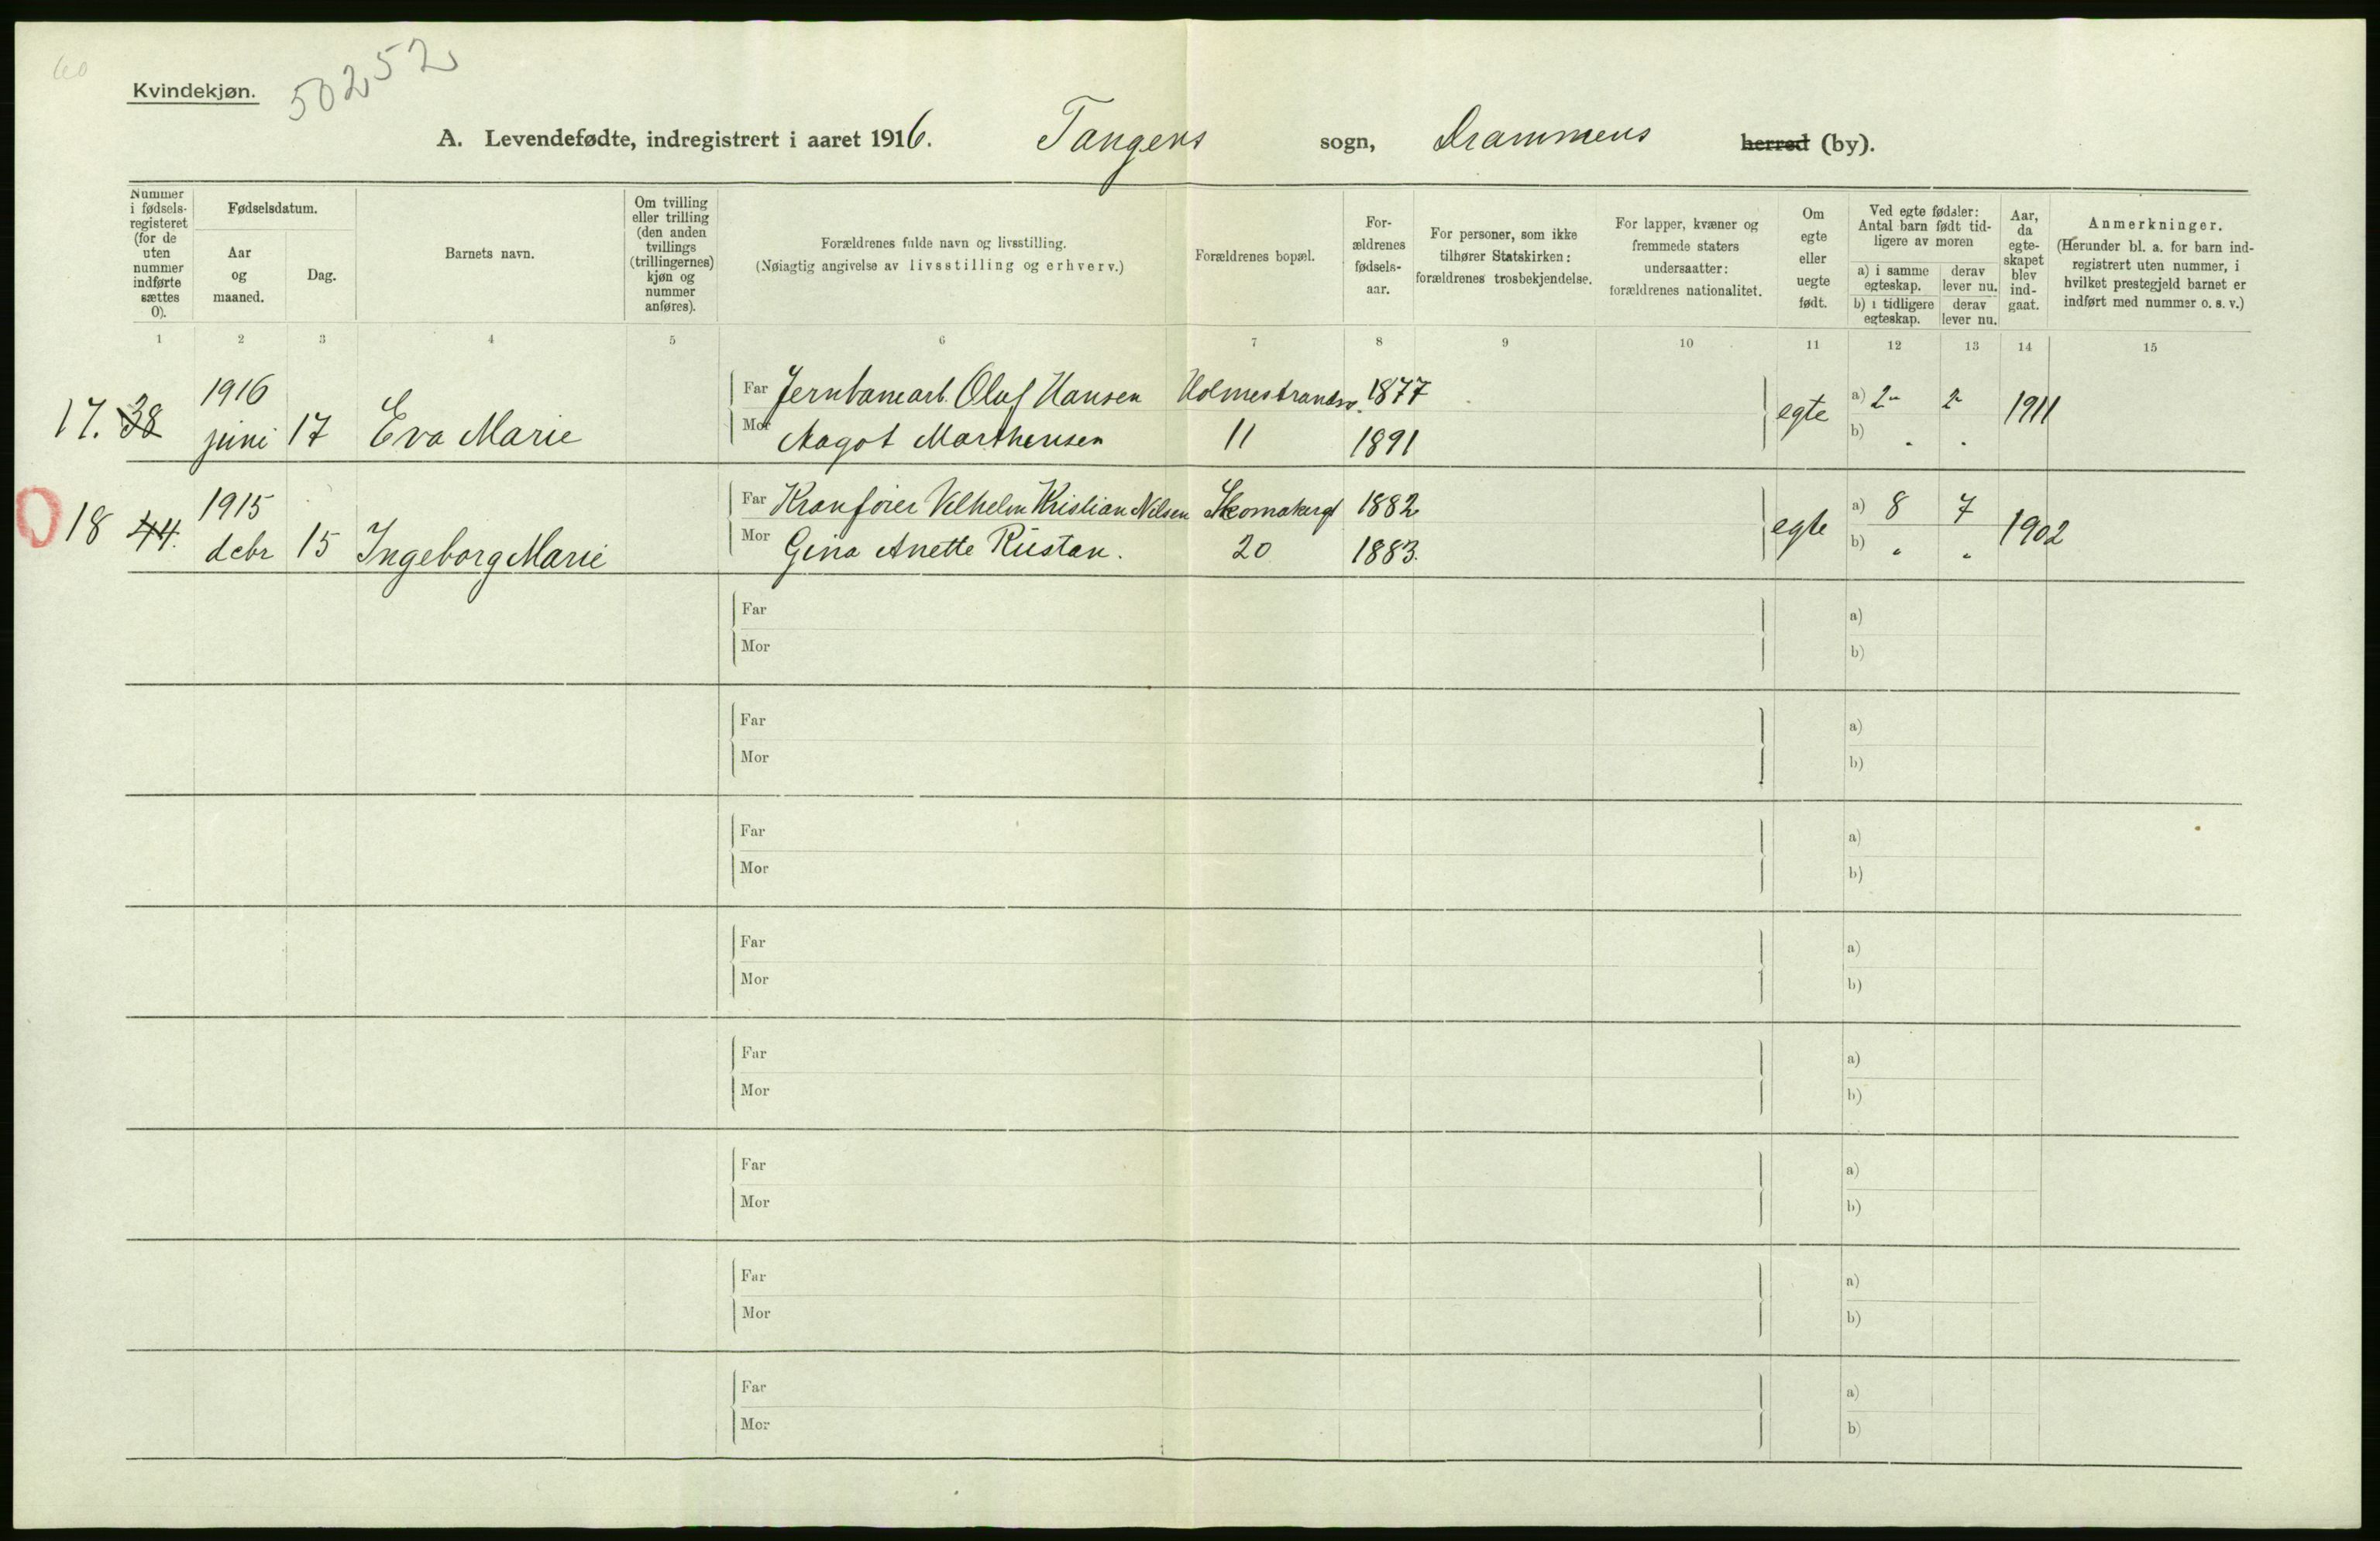 60
Kvindekjøn. 50252
A. Levendefødte, indregistrert i aaret 1916. Tangens sogn, Drammens herred (by).
Nummer i fødsels-registeret (for de uten nummer indførte sættes 0).
Fødselsdatum.
Aar og maaned.
Dag.
Barnets navn.
Om tvilling eller trilling (den anden tvillings (trillingernes) kjøn og nummer anføres).
Forældrenes fulde navn og livsstilling.
(Nøiagtig angivelse av livsstilling og erhverv.)
Forældrenes bopæl.
For-ældrenes fødsels-aar.
For personer, som ikke tilhører Statskirken: forældrenes trosbekjendelse.
For lapper, kvæner og fremmede staters undersaatter: forældrenes nationalitet.
Om egte eller uegte født.
Ved egte fødsler: Antal barn født tid-ligere av moren
a) i samme egteskap.
derav lever nu.
b) i tidligere egteskap.
derav lever nu.
Aar, da egte-skapet blev ind-gaat.
Anmerkninger.
(Herunder bl. a. for barn ind-registrert uten nummer, i hvilket prestegjeld barnet er indført med nummer o. s. v.)
1 2 3 4 5 6 7 8 9 10 11 12 13 14 15
1916 Far Jernbanearb. Olaf Hansen Holmestrandsv. 1877 a) 2 2
17. 38 juni 17 Eva Marie Mor Aagot Marthensen 11 1891 egte b) " " 1911
1915 Far Kranfører Vilhelm Kristian Nilsen Skomakergt 1882 a) 8 7
0 18 44. debr 15 Ingeborg Marie Mor Gina Anette Rustan. 20 1883. egte b) " " 1902
Far a)
Mor b)
Far a)
Mor b)
Far a)
Mor b)
Far a)
Mor b)
Far a)
Mor b)
Far a)
Mor b)
Far a)
Mor b)
Far a)
Mor b)